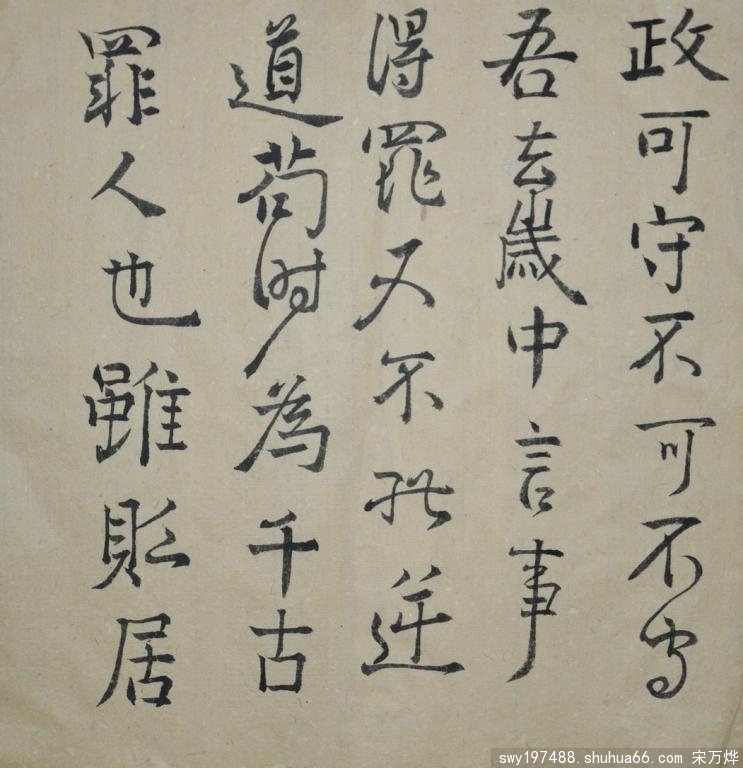 政可守不可不守
吾去歲中言事
得罪又不能逆
道苟时為千古
罪人也雖貶居
swy197488.shuhua66.com 宋万烨